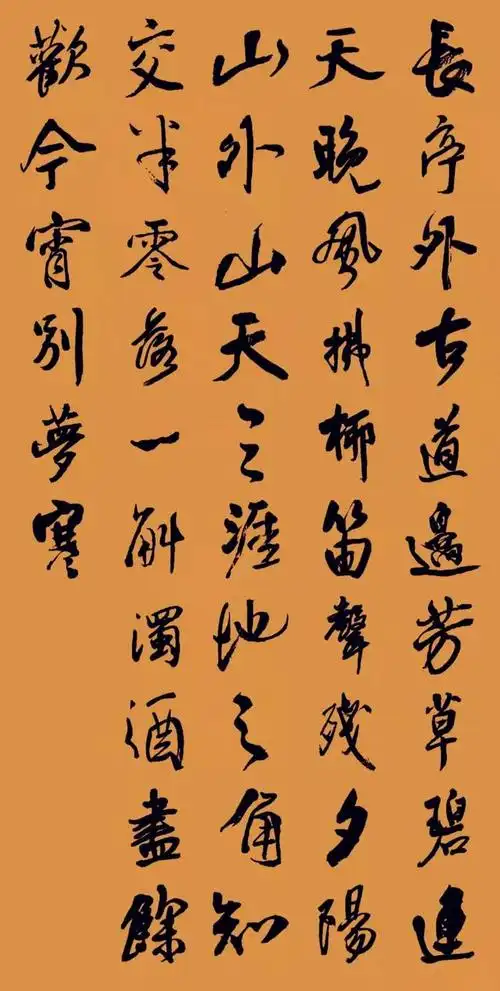 長亭外古道邊芳草碧連
天晚風拂柳笛聲殘夕陽
山外山天之涯地之角知
交半零落一斛濁酒盡餘
歡今宵別夢寒